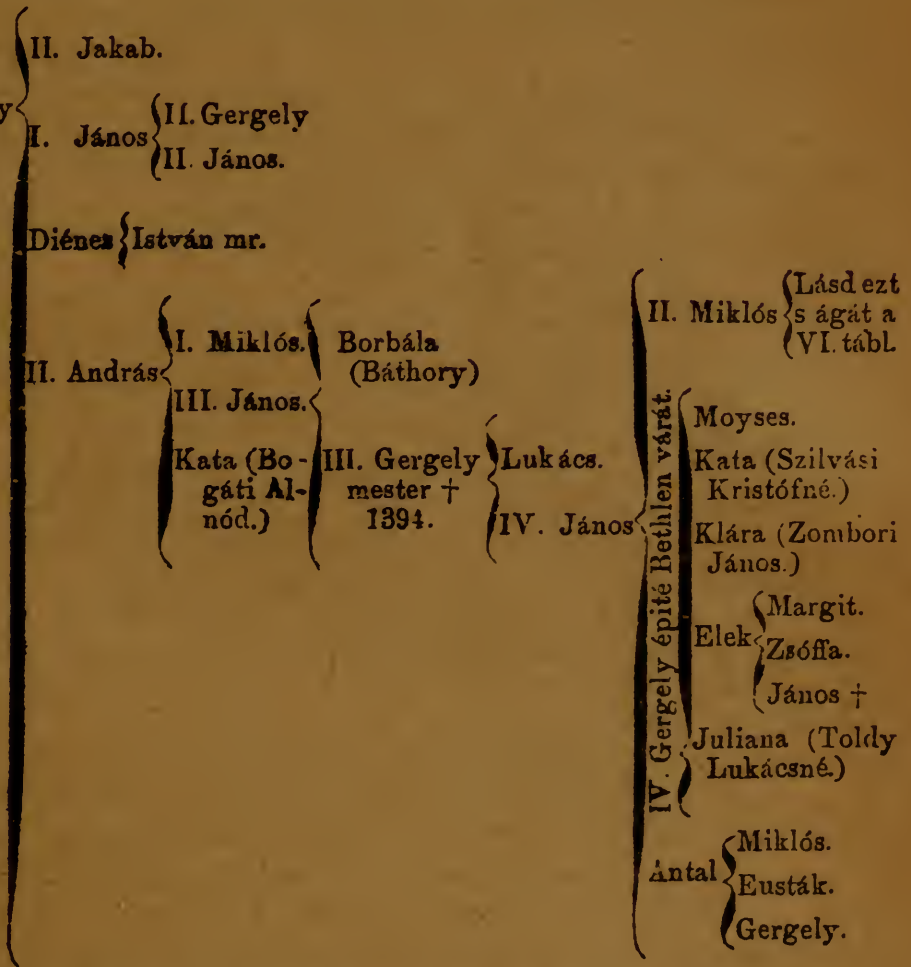 y
II. Jakab.
I. János
II. Gergely
II. János.
Diénes
István mr.
II. András
I. Miklós.
III. János.
Kata (Bo-
gáti Al-
nód.)
Borbála
(Báthory)
III. Gergely
mester †
1394.
Lukács.
IV. János
II. Miklós
Lásd ezt
s ágát a
VI. tábl.
IV. Gergely épité Bethlen várát.
Moyses.
Kata (Szilvási
Kristófné.)
Klára (Zombori
János.)
Elek
Margit.
Zsóffa.
János †
Juliana (Toldy
Lukácsné.)
Antal
Miklós.
Eusták.
Gergely.